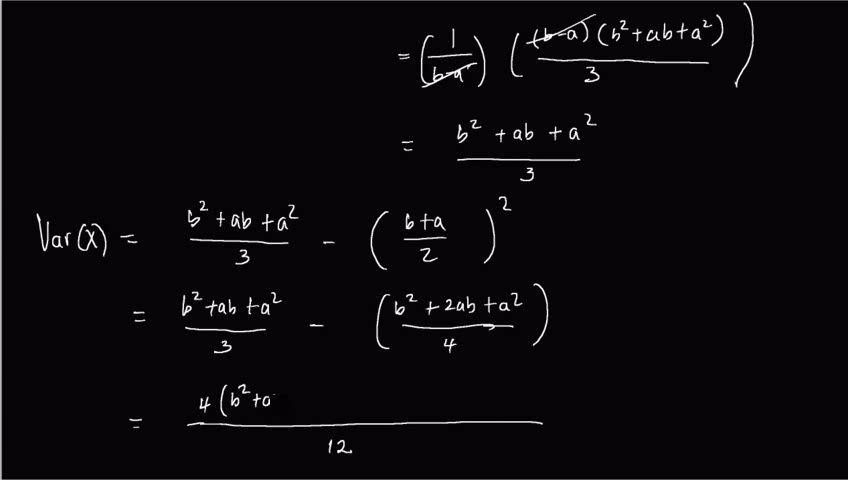 = (1/(b-a)) ((b-a)(b² + ab + a²)/3)
= (b² + ab + a²)/3
Var(X) = (b² + ab + a²)/3 - ((b+a)/2)²
= (b² + ab + a²)/3 - ((b² + 2ab + a²)/4)
= 4(b² + a/12